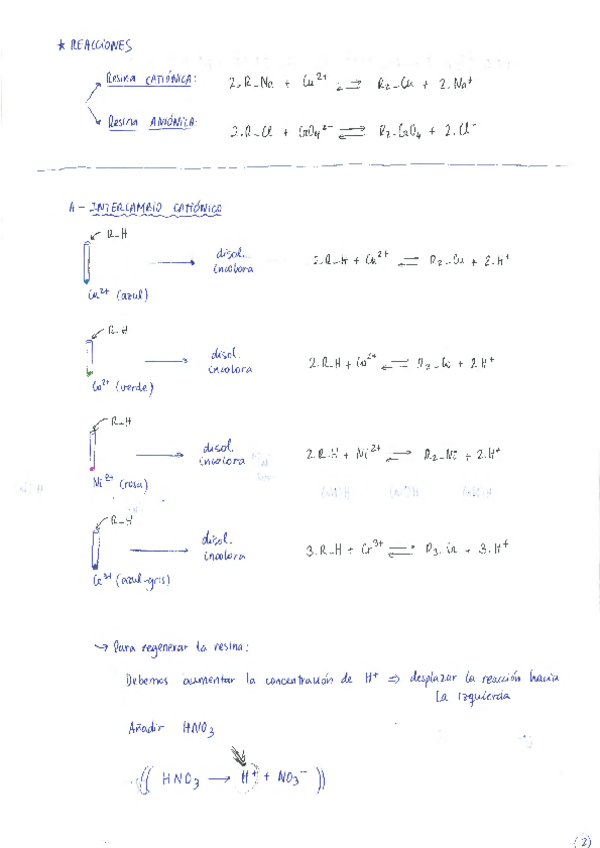 * REACCIONES
Resina CATIÓNICA: 2.R-Na + Cu²⁺ ⇌ R₂-Cu + 2.Na⁺
Resina ANIÓNICA: 2.R-Cl + CrO₄²⁻ ⇌ R₂-CrO₄ + 2.Cl⁻
A - INTERCAMBIO CATIÓNICO
R-H
disol.
incolora
2.R-H + Cu²⁺ ⇌ R₂-Cu + 2.H⁺
Cu²⁺ (azul)
R-H
disol.
incolora
2.R-H + Co²⁺ ⇌ R₂-Co + 2H⁺
Co²⁺ (verde)
R-H
disol.
incolora
2.R-H + Ni²⁺ ⇌ R₂-Ni + 2.H⁺
Ni²⁺ (rosa)
R-H
disol.
incolora
3.R-H + Cr³⁺ ⇌ R₃-Cr + 3.H⁺
Cr³⁺ (azul-gris)
→ Para regenerar la resina:
Debemos aumentar la concentración de H⁺ ⇒ desplazar la reacción hacia
la izquierda
Añadir HNO₃
(( HNO₃ → H⁺ + NO₃⁻ ))
(2)